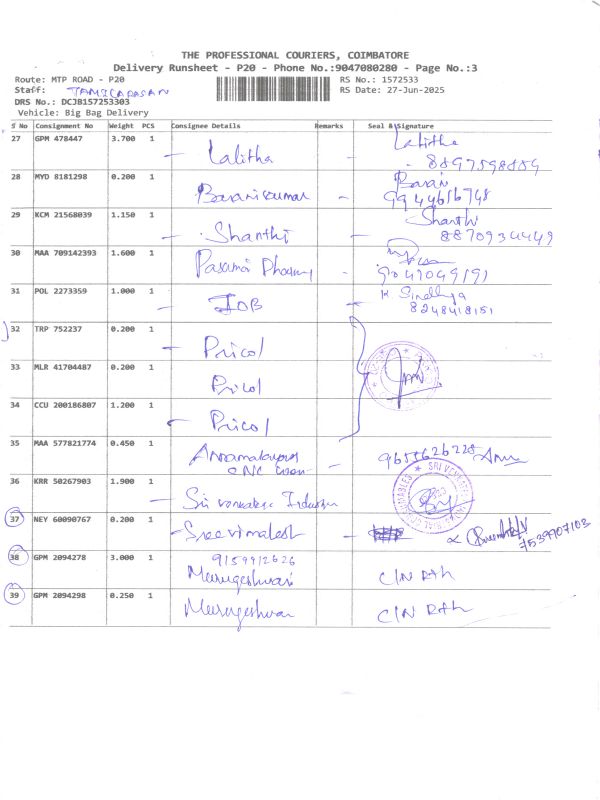 THE PROFESSIONAL COURIERS, COIMBATORE
Delivery Runsheet - P20 - Phone No.:9047080280 - Page No.:3
Route: MTP ROAD - P20
RS No.: 1572533
Staff: TAMILARASAN
RS Date: 27-Jun-2025
DRS No.: DCJB157253303
Vehicle: Big Bag Delivery
S No Consignment No Weight PCS Consignee Details Remarks Seal & Signature
27 GPM 478447 3.700 1 Lalitha Lalitha
28 MYD 8181298 0.200 1 Bavanikumar Bavani
9944656748
29 KCM 21568039 1.150 1 Shanthi Shanthi
8870934449
30 MAA 709142393 1.600 1
9047049191
31 POL 2273359 1.000 1 IOB K Sindhuja
8248418151
32 TRP 752237 0.200 1 Pricol
33 MLR 41704487 0.200 1 Pricol
34 CCU 200186807 1.200 1 Pricol
35 MAA 577821774 0.450 1
36 KRR 50267903 1.900 1 Sri
37 NEY 60090767 0.200 1 Sreevimalesh
7539907103
38 GPM 2094278 3.000 1 9159912626
Murugeshwari
39 GPM 2094298 0.250 1 Murugeshwari